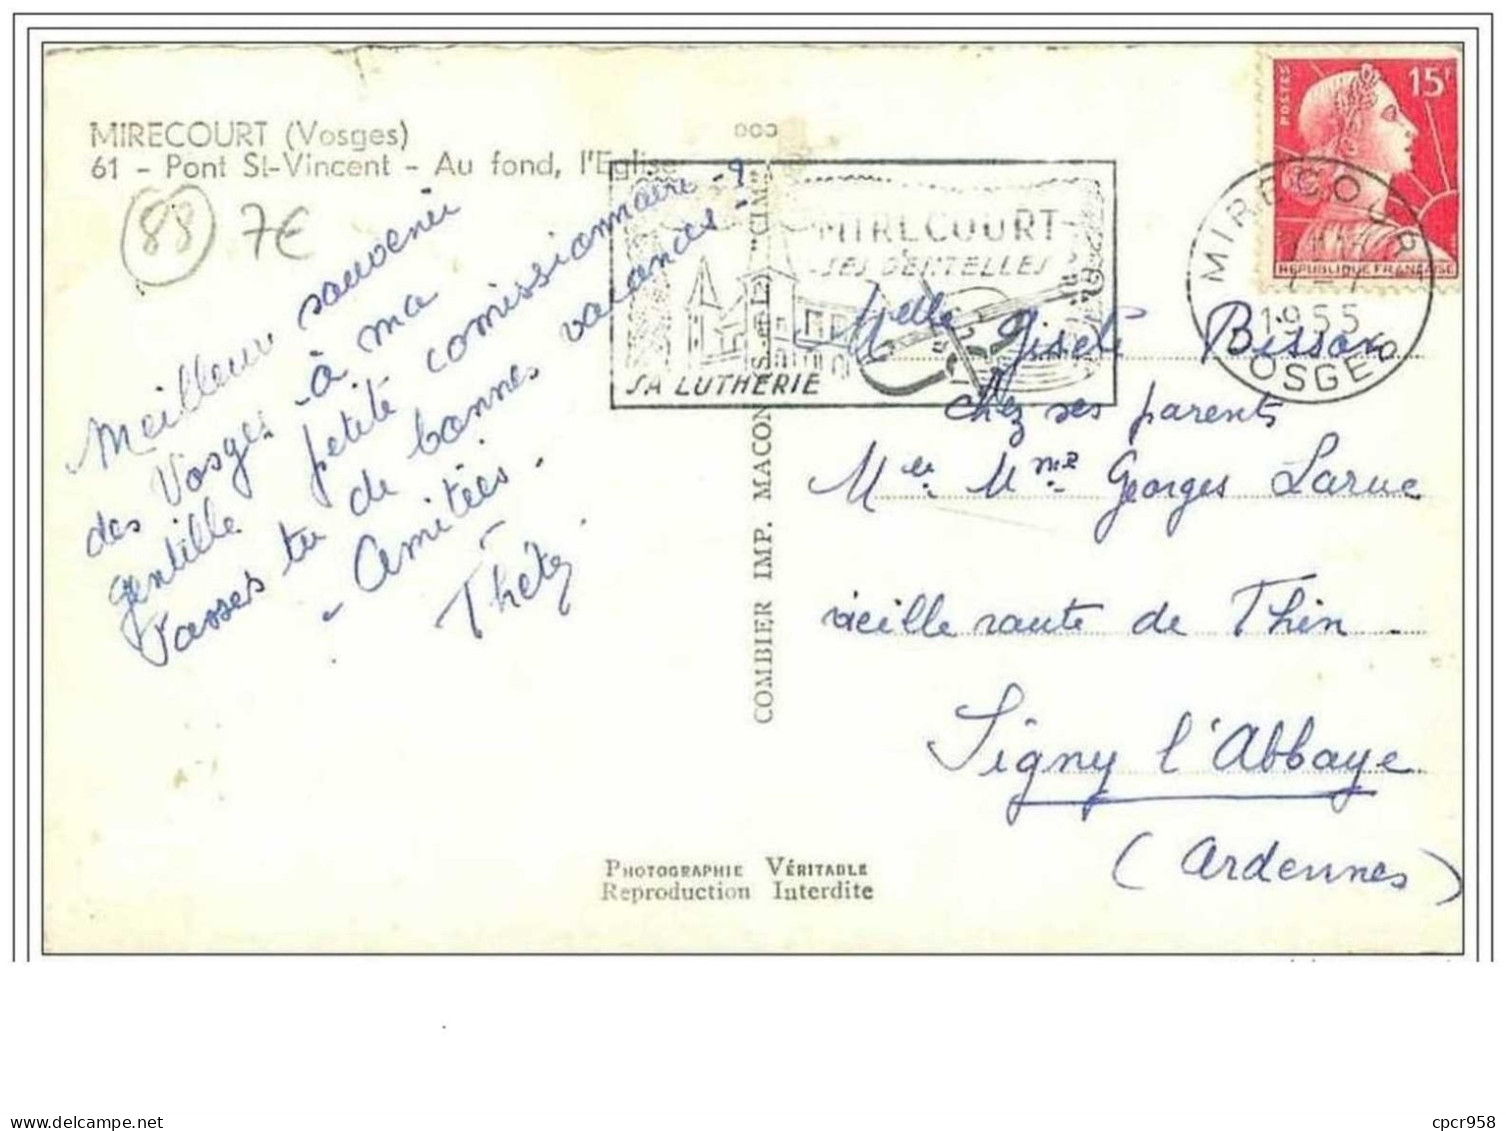 MIRECOURT (Vosges)
61 - Pont St-Vincent - Au fond, l'Eglise
88 7€
Meilleur souvenir
des Vosges à ma
gentille petite comissionnaire -?
Passes tu de bonnes vacances -?
- Amitiés.
MIRECOURT
SES DENTELLES
SA LUTHERIE
COMBIER IMP. MACON "CIM"
POSTES
15F
REPUBLIQUE FRANÇAISE
MIRECOURT
1955
VOSGES
Melle Gisele Bisson
chez ses parents
Mr et Mme Georges Larue
vieille route de Thin
Signy l'Abbaye
(Ardennes)
PHOTOGRAPHIE VÉRITABLE
Reproduction Interdite
cpcr958